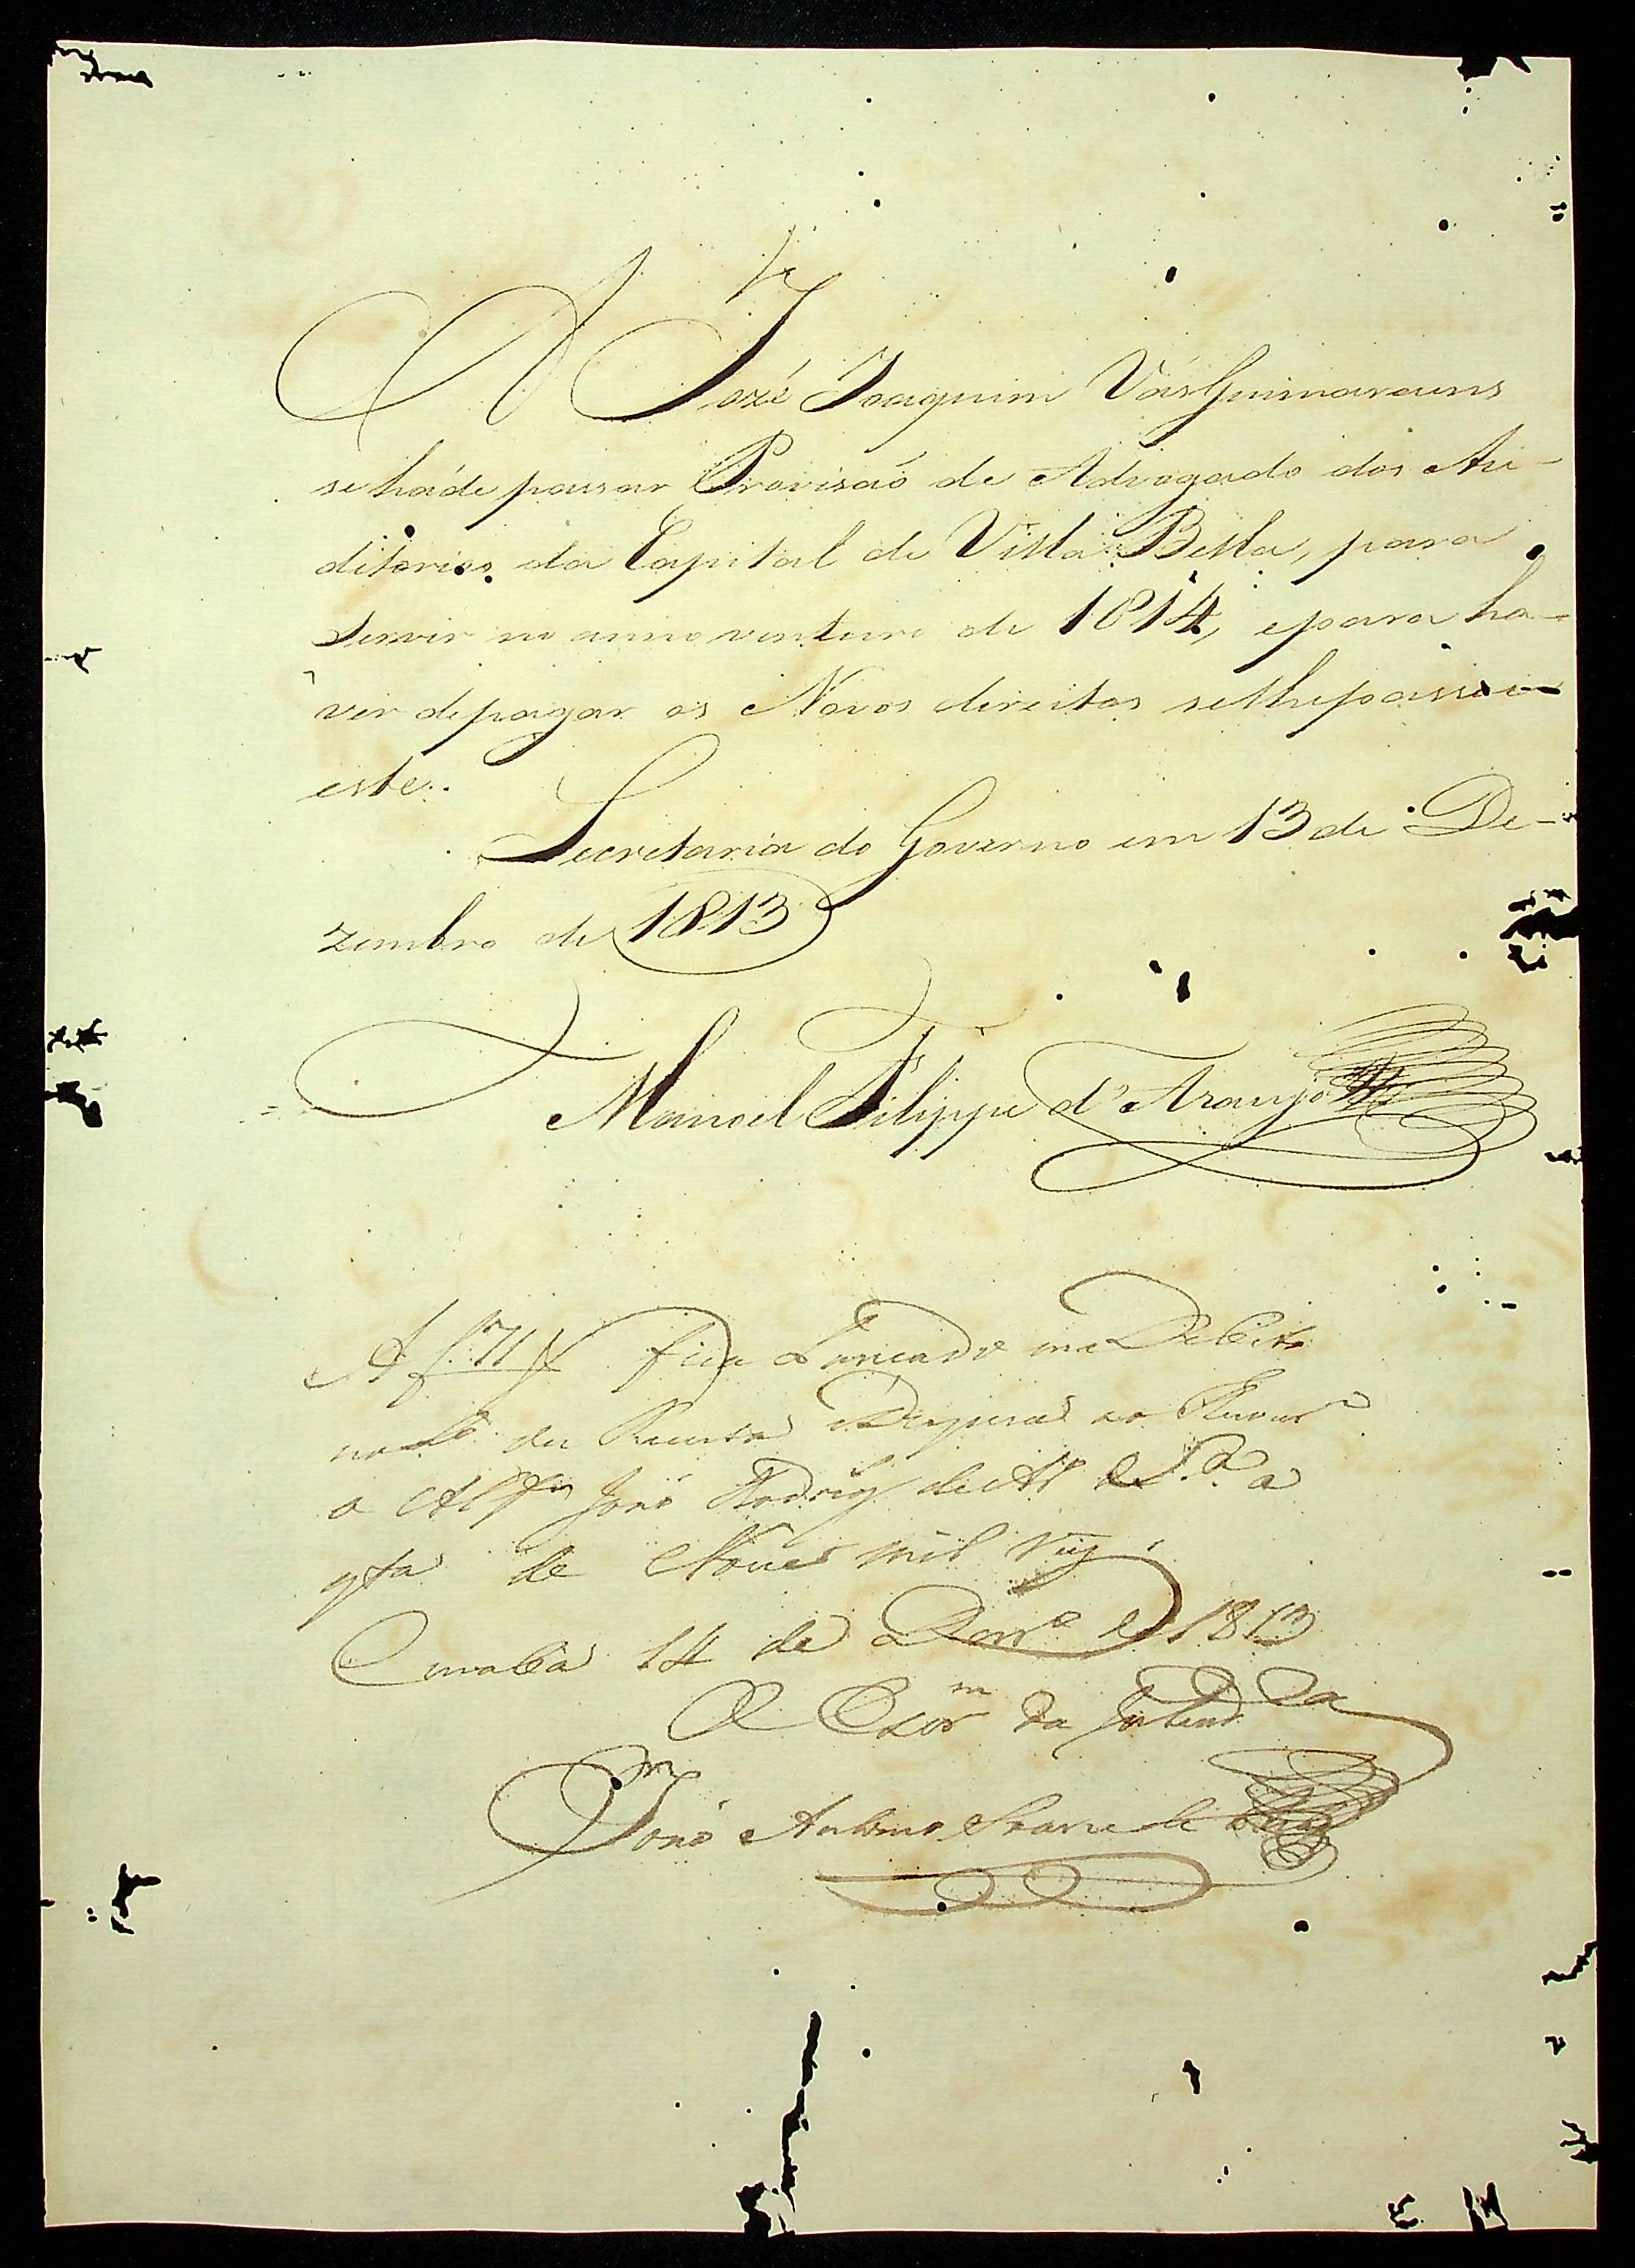 A Jozé Joaquim Vás Guimaraens
se háde passar Provisaõ de Advogado dos Au-
ditorios da Capital de Villa Bella, para
servir no anno venturo de 1814, epara ha-
ver depagar os Novos direitos selhepassou
este.
Secretaria do Governo em 13 de De-
zembro de 1813
Manoel Filippe d'Araujo
A f. 71 fica Lancado em Debito
no L.º da Receita e Despeza ao
o Alf.es João Rodrig
q.ta de Nove mil
Cuiabá 14 de Dezr.º de 1813
O Escr.am da Intend.ca
João Antonio